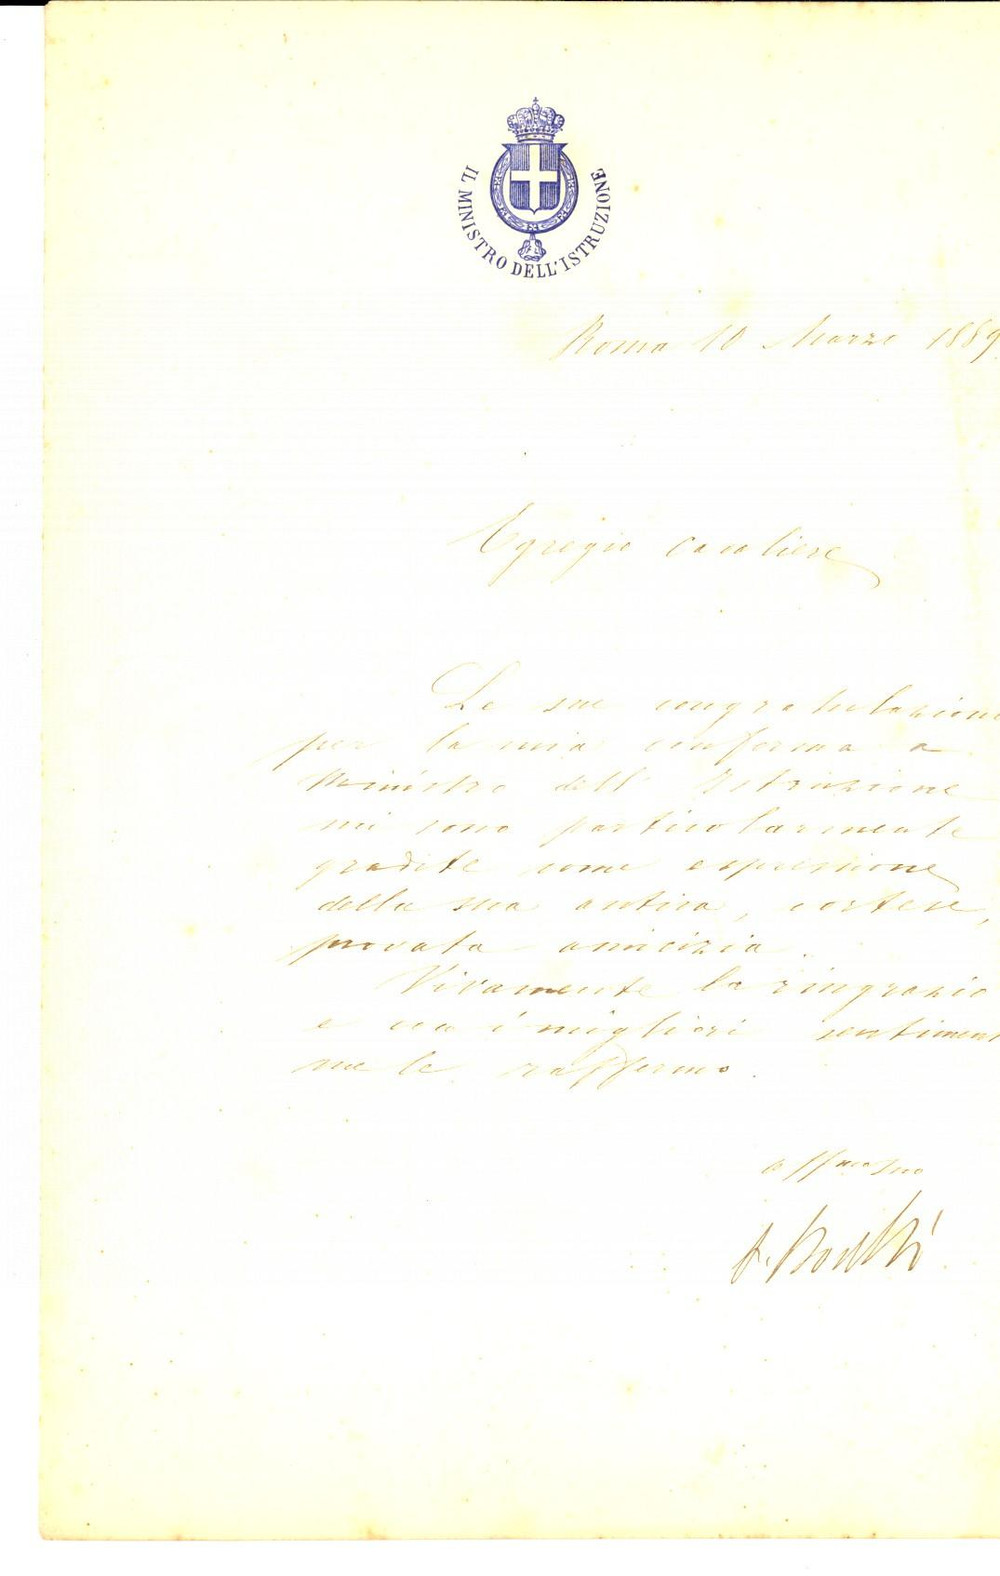 IL MINISTRO DELL'ISTRUZIONE
Roma 10 Marzo 1889
Egregio Cavaliere
Le sue congratulazioni
per la mia conferma a
Ministro dell'Istruzione
mi sono particolarmente
gradite come espressione
della sua antica, cortese,
provata amicizia.
Vivamente la ringrazio
e con i migliori sentimenti
me le raffermo.
affmo suo
P. Boselli